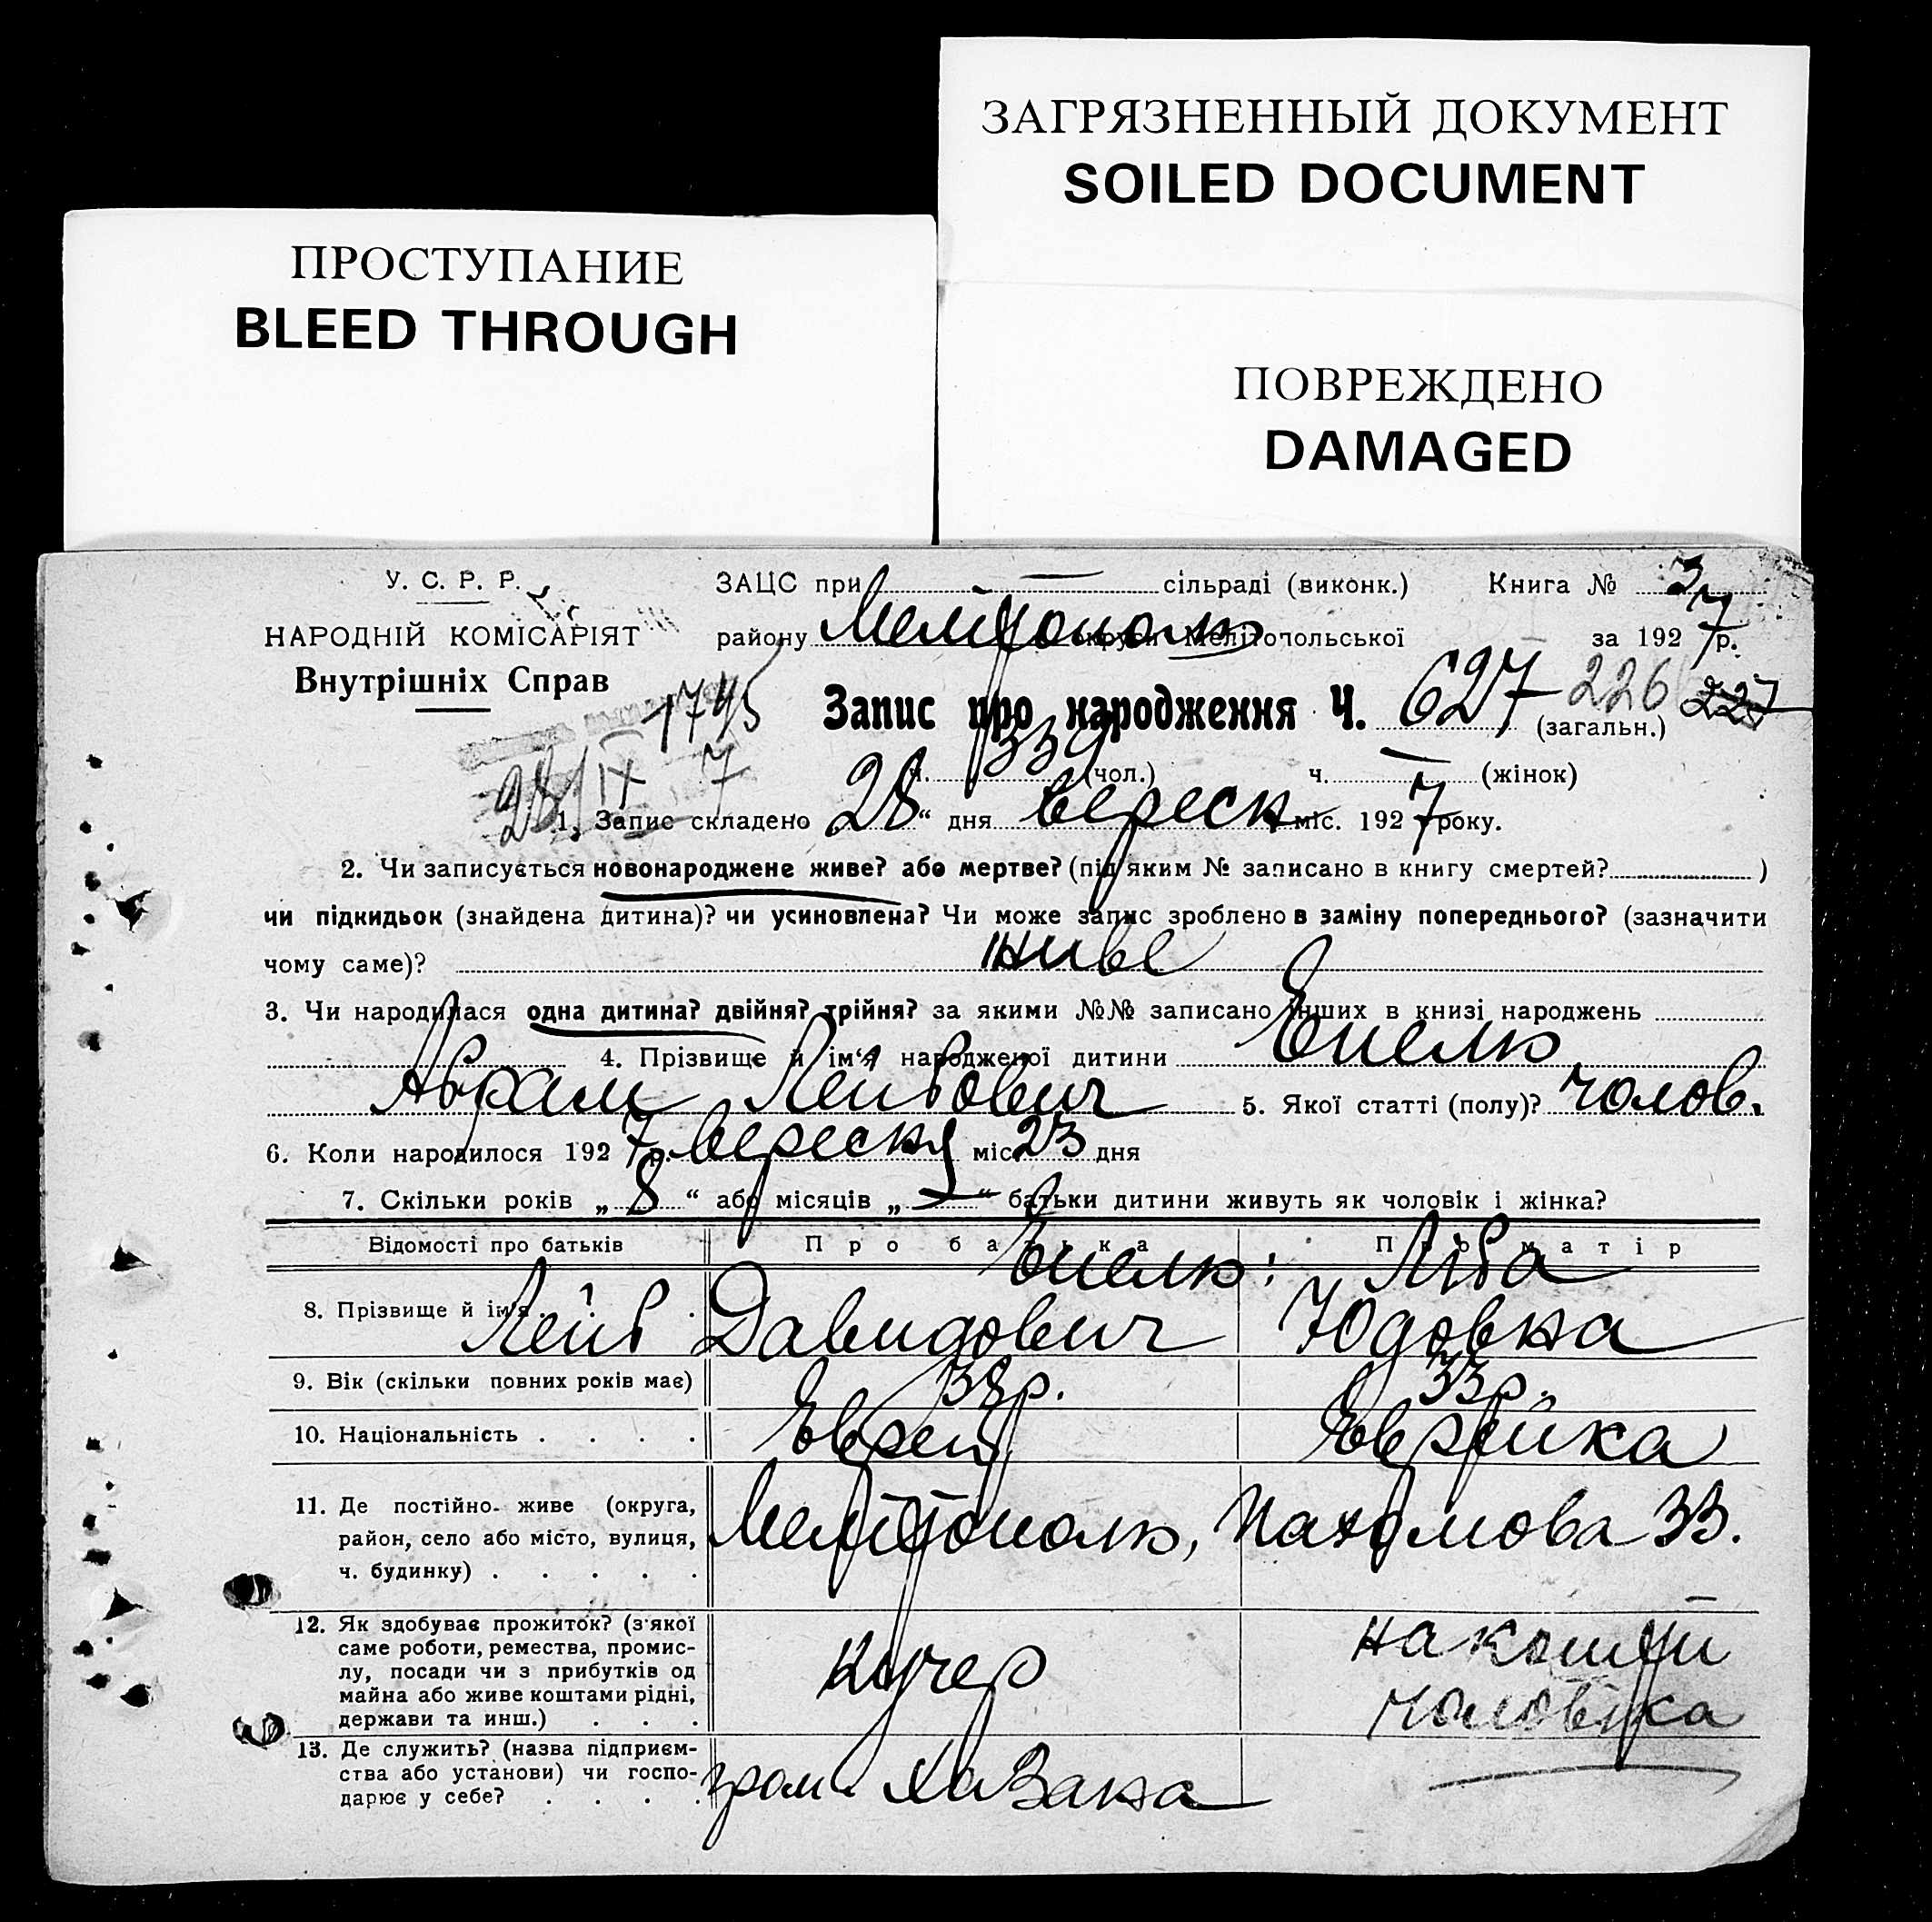 ЗАГРЯЗНЕННЫЙ ДОКУМЕНТ
SOILED DOCUMENT
ПРОСТУПАНИЕ
BLEED THROUGH
ПОВРЕЖДЕНО
DAMAGED
У. С. Р. Р.
НАРОДНІЙ КОМІСАРІЯТ
Внутрішніх Справ
ЗАЦС при — сільраді (виконк.) Книга № 3
району Мелітополь округи Мелітопольської за 1927 р.
1745
Запис про народження Ч. 627 (загальн.) 226 227
28/IX 7
ч. 339 (чол.) ч. — (жінок)
1. Запис складено 28 “ дня вересн міс. 1927 року.
2. Чи записується новонароджене живе? або мертве? (під яким № записано в книгу смертей? )
чи підкидьок (знайдена дитина)? чи усиновлена? Чи може запис зроблено в заміну попереднього? (зазначити
чому саме)? живе
3. Чи народилася одна дитина? двійня? трійня? за якими №№ записано інших в книзі народжень
4. Прізвище й ім‘я народженої дитини Епель
Абрам Лейбович 5. Якої статті (полу)? чолов.
6. Коли народилося 1927 р. вересня міс. 23 дня
7. Скільки років „ 8 “ або місяців „ — “ батьки дитини живуть як чоловік і жінка?
Відомості про батьків Про батька Про матір
Епель: Ліба
8. Прізвище й ім‘я Лейб Давидович Юдовна
9. Вік (скільки повних років має) 38р. 33р.
10. Національність Еврей Еврейка
11. Де постійно живе (округа,
район, село або місто, вулиця, Мелітополь, Пахомова 33.
ч. будинку)
12. Як здобуває прожиток? (з‘якої
саме роботи, ремества, промис-
лу, посади чи з прибутків од
майна або живе коштами рідні,
держави та инш.) Кучер на кошти
чоловіка
13. Де служить? (назва підприєм-
ства або установи) чи госпо-
дарює у себе? Хазана